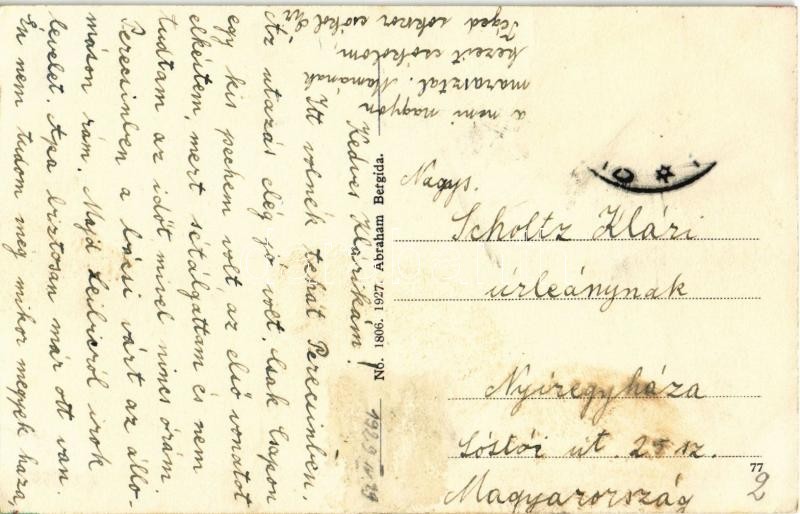 Kedves Klárikám!
Itt volnék tehát Perecsinben.
Az utazás elég jó volt. Csak Csapon
egy kis pechem volt, az első vonatot
elkéstem, mert sétálgattam és nem
tudtam az időt mivel nincs órám.
Perecsinben a bácsi várt az állo-
máson rám. Majd Leibicról irok
levelet. Apa biztosan már ott van.
Én nem tudom még mikor megyek haza,
a neni nagyon
marasztal. Mamának
kezeit csókolom,
Téged sokszor csókol
No. 1806. 1927. Ábraham Bergida.
1929 IV. 29
Nagys.
Scholtz Klári
úrleánynak
Nyiregyháza
Sóstói út. 25 sz.
Magyarország
77
2